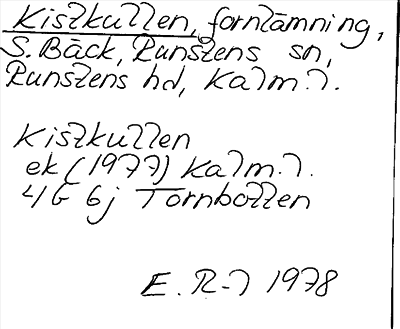 Kistkullen, fornlämning,
S. Bäck, Runstens sn,
Runstens hd, Kalm. l.
Kistkullen
ek (1977) Kalm. l.
4G 6j Tornbotten
E. R-l 1978